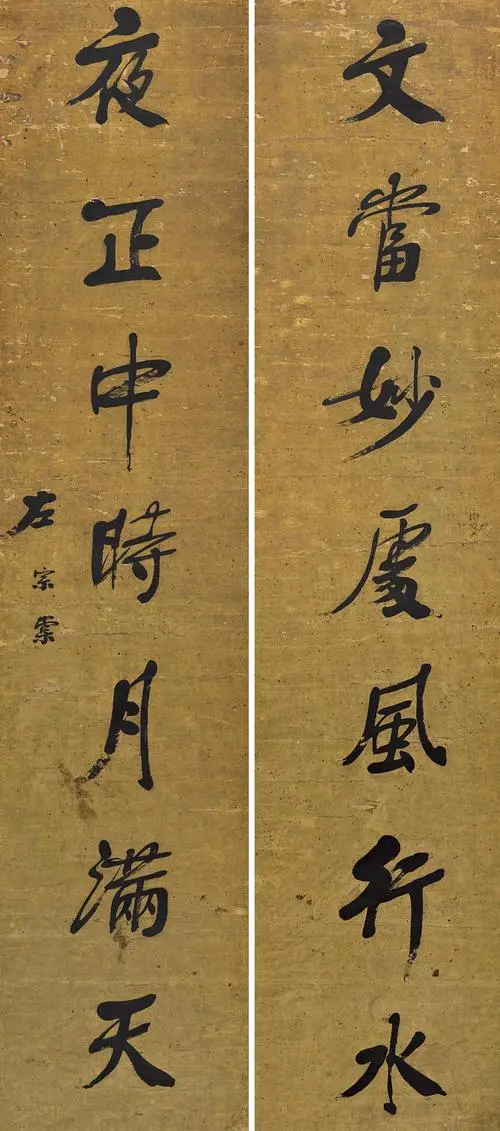 文當妙處風行水
夜正中時月滿天
左宗棠